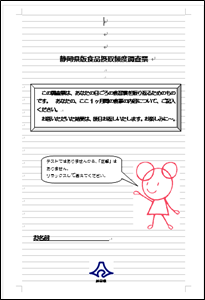 静岡県版食品摂取頻度調査票
この調査票は、あなたの日ごろの食習慣を振り返るためのもの
です。　あなたの、ここ1ヶ月間の食事の内容について、ご記入
ください。
お答いただいた結果は、後日お返しいたします。お楽しみに～。
テストではありませんから、「正解」は
ありません。
リラックスして答えてください。
お名前